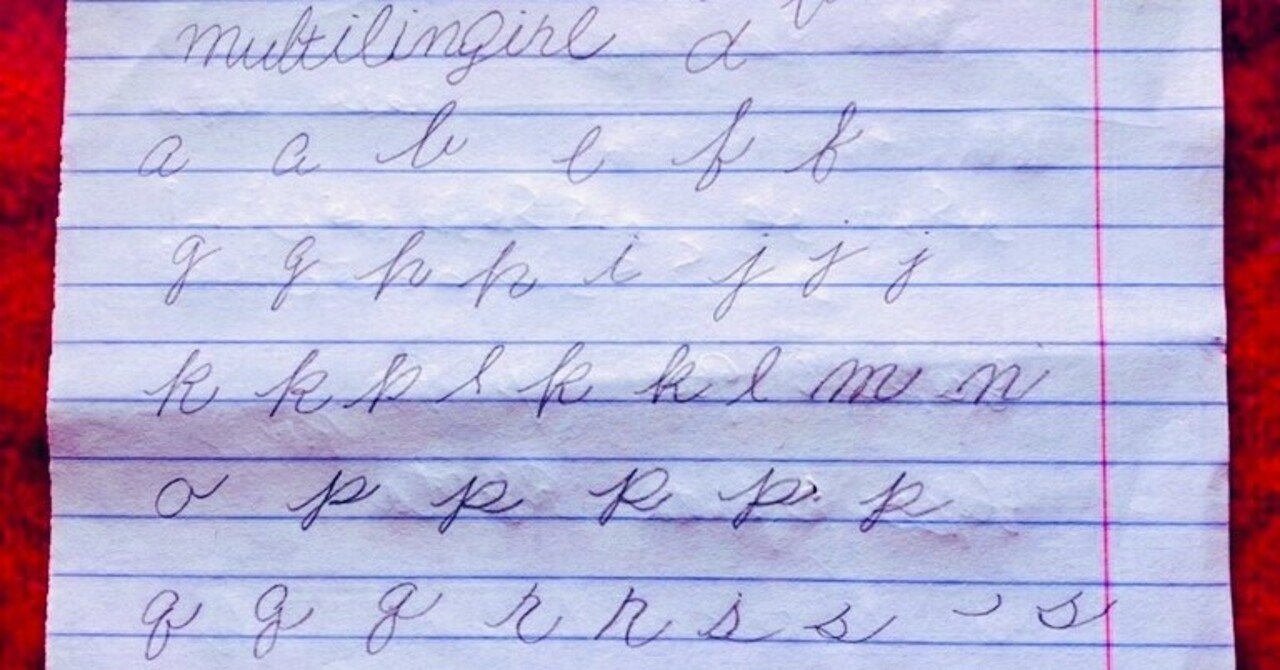 multilingirl a
a a b e f f
g g h h i j j j
k k p l k k l m n
o p p p p. p
q g g r r s s s